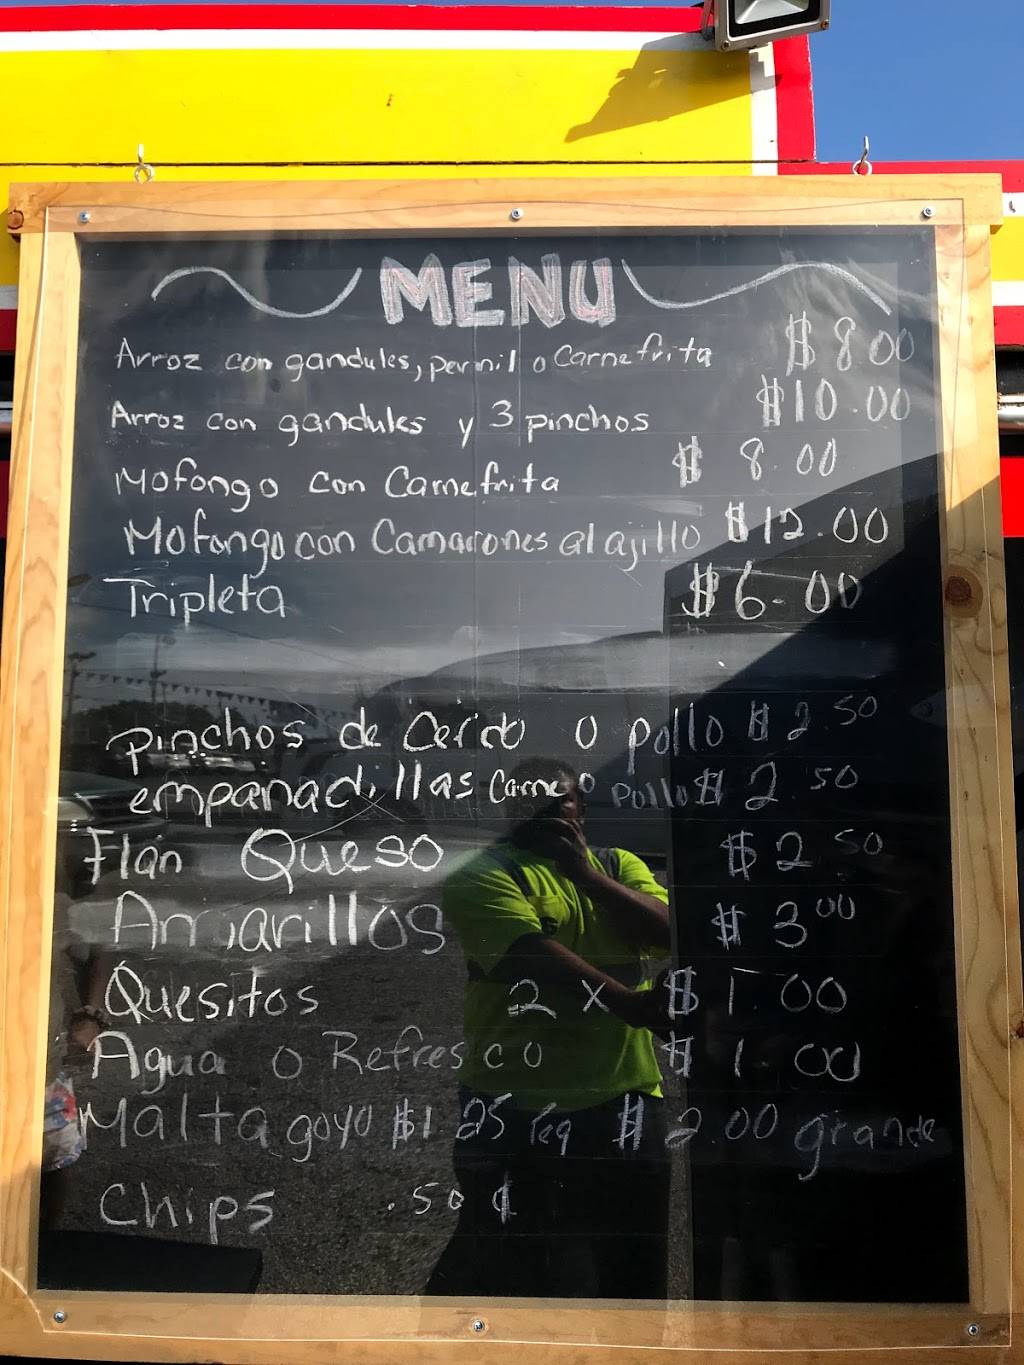 MENU
Arroz con gandules, pernil o Carne frita $8.00
Arroz con gandules y 3 pinchos $10.00
Mofongo con Carne frita $8.00
Mofongo con Camarones al ajillo $12.00
Tripleta $6.00
pinchos de Cerdo o pollo $2.50
empanadillas Carne o pollo $2.50
Flan Queso $2.50
Amarillos $3.00
Quesitos 2 x $1.00
Agua o Refresco $1.00
Malta goyo $1.25 peq $2.00 grande
Chips .50¢